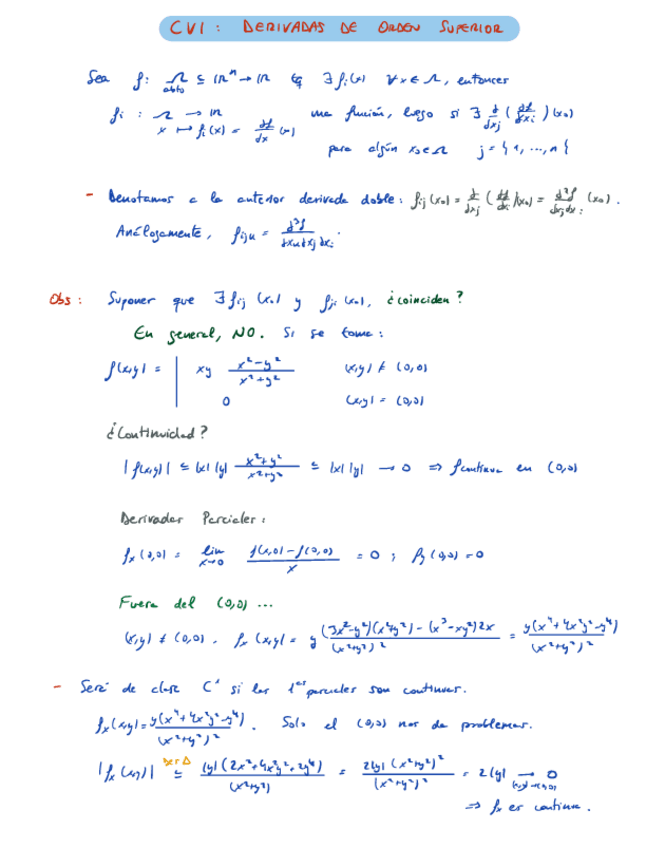 CVI: DERIVADAS DE ORDEN SUPERIOR
Sea f: Ω ⊆ ℝⁿ → ℝ tq ∃ fᵢ(x) ∀x ∈ Ω, entonces
abto
fᵢ : Ω → ℝ una función, luego si ∃ ∂/∂xⱼ (∂f/∂xᵢ)(x₀)
x ↦ fᵢ(x) = ∂f/∂x (x)
para algún x₀ ∈ Ω j = {1, ..., n}
- Denotamos a la anterior derivada doble: fᵢⱼ(x₀) = ∂/∂xⱼ (∂f/∂xᵢ)(x₀) = ∂²f/∂xⱼ∂xᵢ (x₀).
Análogamente, fᵢⱼₖ = ∂³f/∂xₖ∂xⱼ∂xᵢ.
Obs: Suponer que ∃ fᵢⱼ(x₀) y fⱼᵢ(x₀), ¿coinciden?
En general, NO. Si se toma:
f(x,y) = | xy (x²-y²)/(x²+y²) (x,y) ≠ (0,0)
0 (x,y) = (0,0)
¿Continuidad?
|f(x,y)| ≤ |x| |y| (x²+y²)/(x²+y²) ≤ |x||y| → 0 ⇒ f continua en (0,0)
Derivadas Parciales:
fₓ(0,0) = lim x→0 (f(x,0) - f(0,0))/x = 0 ; f_y(0,0) = 0
Fuera del (0,0) ...
(x,y) ≠ (0,0), fₓ(x,y) = y ((3x²-y²)(x²+y²) - (x³-xy²)2x)/(x²+y²)² = y(x⁴+4x²y²-y⁴)/(x²+y²)²
- Será de clase C¹ si las 1ᵃˢ parciales son continuas.
fₓ(x,y) = y(x⁴+4x²y²-y⁴)/(x²+y²)². Solo el (0,0) nos da problemas.
|fₓ(x,y)| ≤ |y|(2x⁴+4x²y²+2y⁴)/(x²+y²) = 2|y|(x²+y²)²/(x²+y²)² = 2|y| → 0
(x,y)→(0,0)
⇒ fₓ es continua.